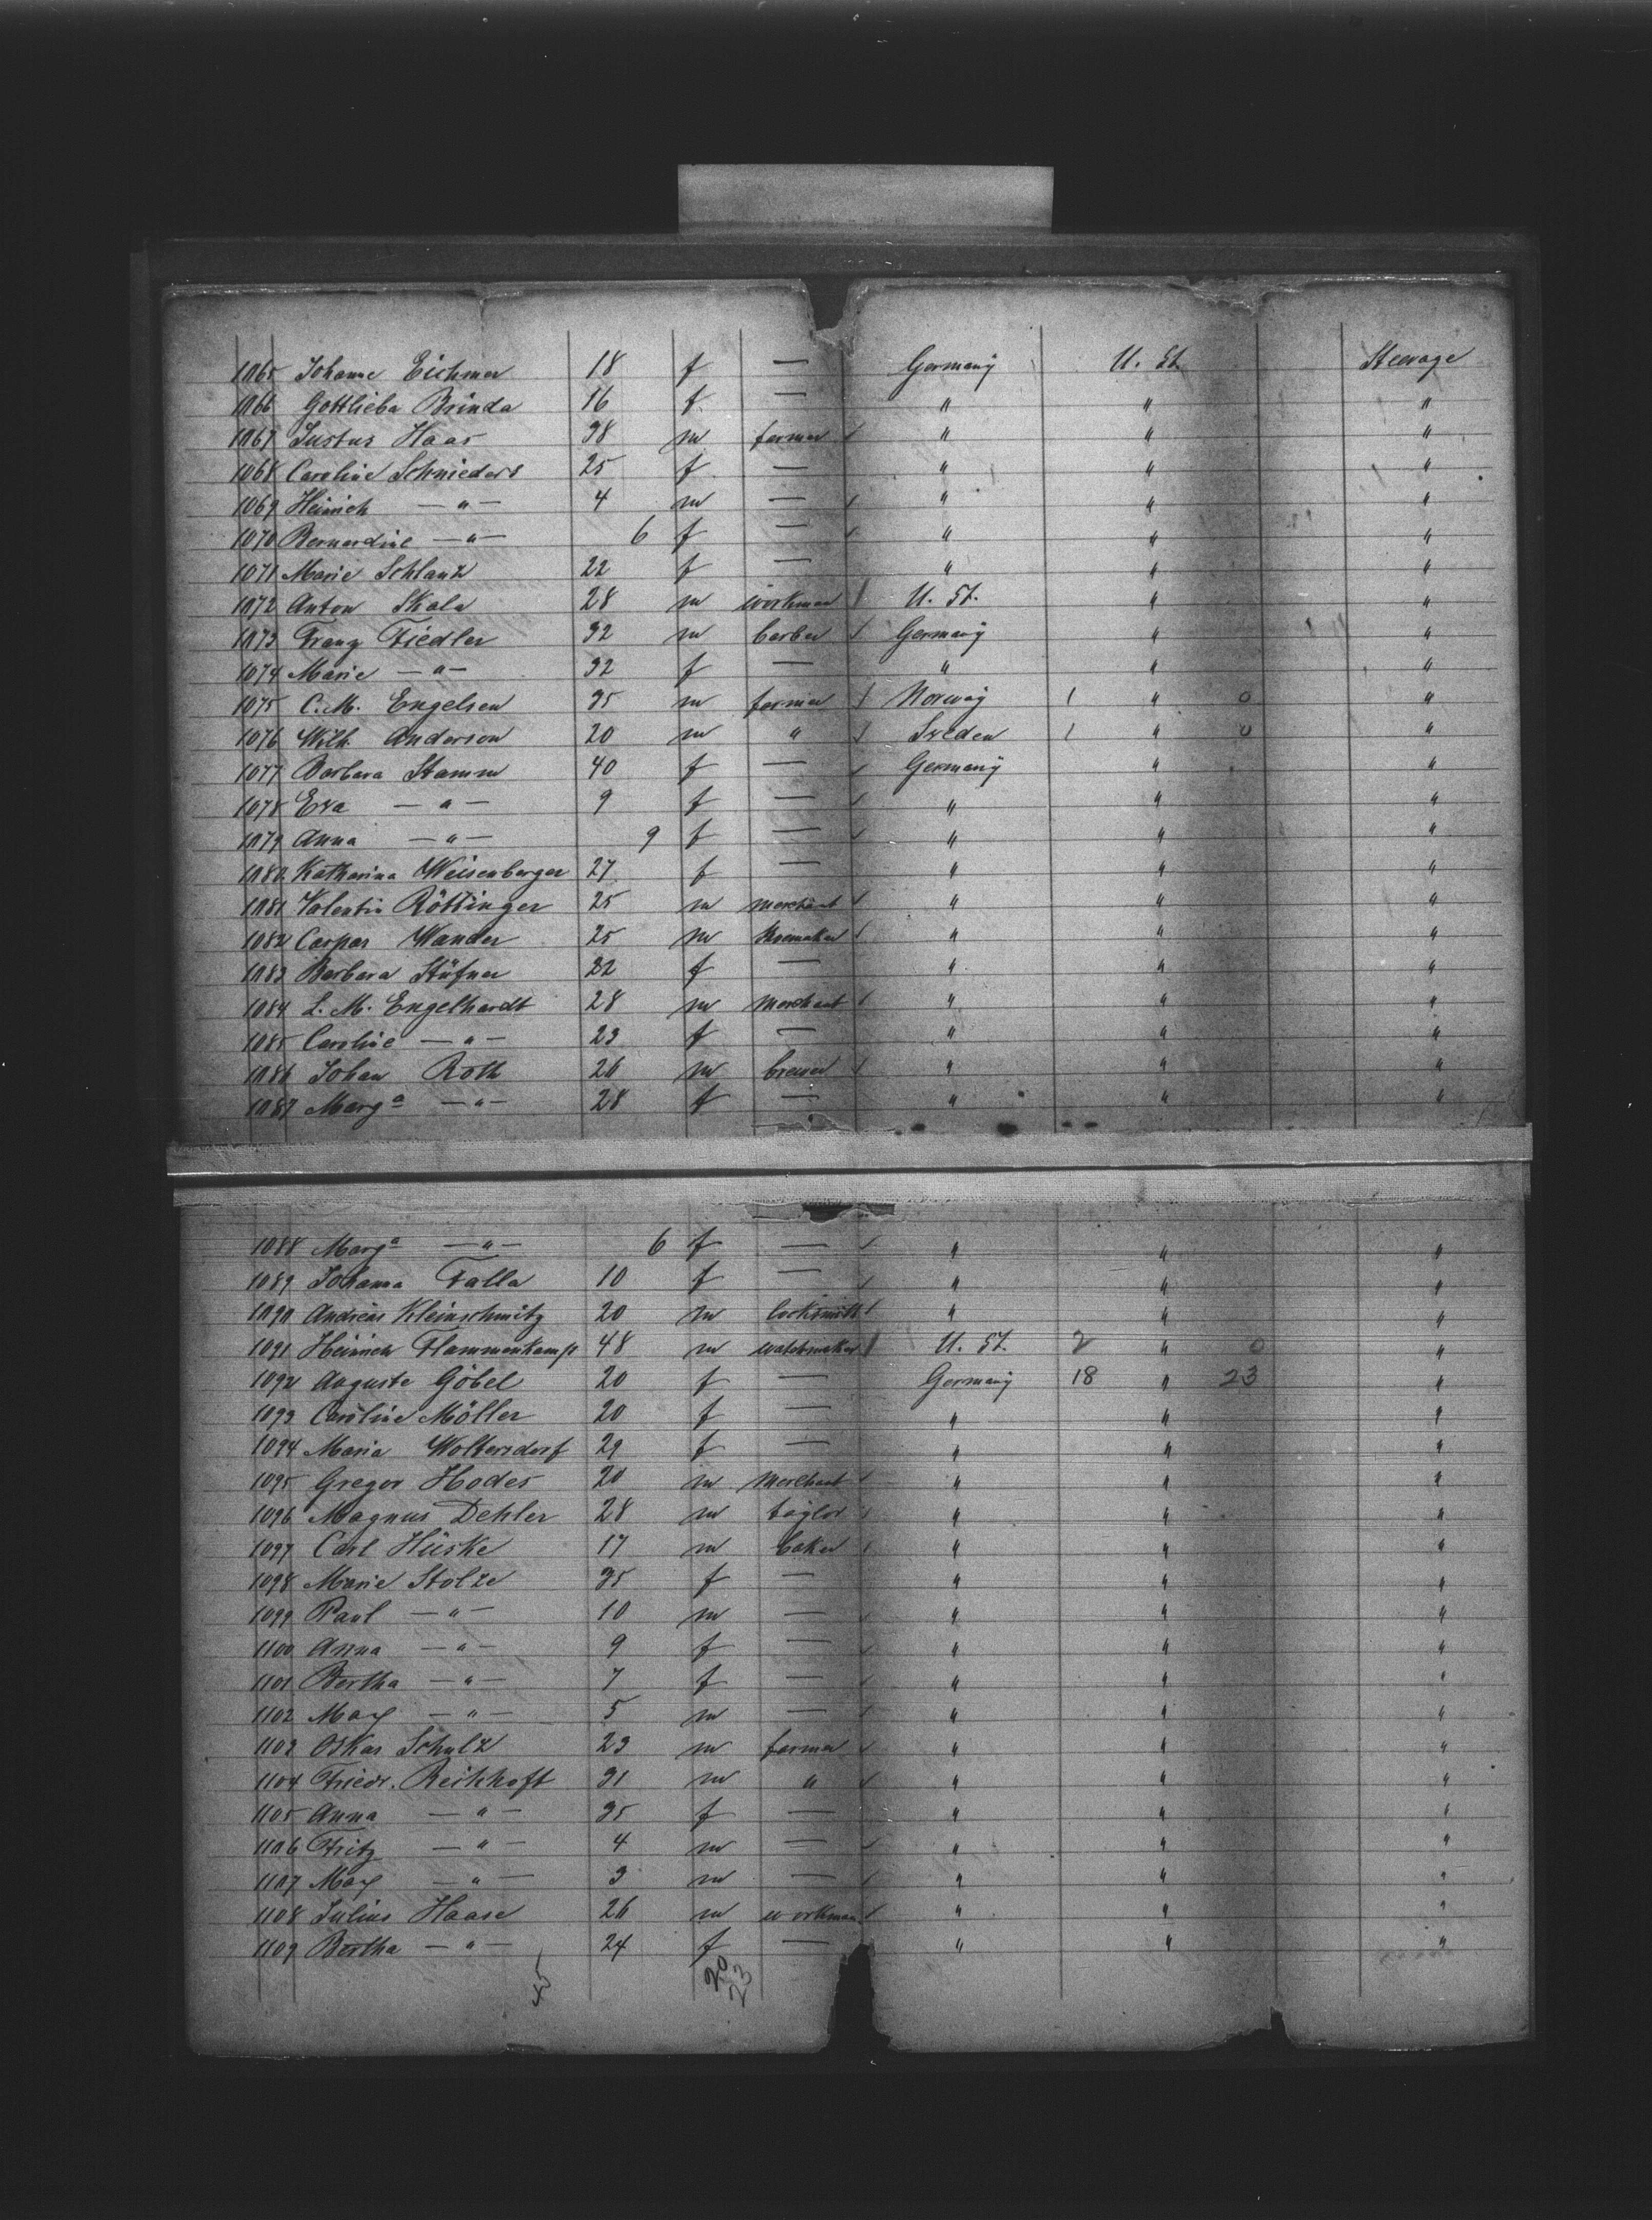 1065 Johanne Eichmer 18 f — Germany U. St. Steerage
1066 Gottlieba Brinda 16 f — " " "
1067 Justus Haas 38 m farmer " " "
1068 Caroline Schnieders 25 f — " " "
1069 Heinrich — " — 4 m — " " "
1070 Bernardine — " — 6 f — " " "
1071 Marie Schlank 22 f — " " "
1072 Anton Skala 28 m workman U. St. " "
1073 Franz Fiedler 32 m barber Germany " "
1074 Marie — " — 32 f — " " "
1075 C. M. Engelsen 35 m farmer Norway 1 " 0 "
1076 Wilh. Anderson 20 m " Sveden 1 " 0 "
1077 Barbara Stamm 40 f — Germany " "
1078 Eva — " — 9 f — " " "
1079 Anna — " — 9 f — " " "
1080 Katharina Weisenberger 27 f — " " "
1081 Valentin Röttinger 25 m merchant " " "
1082 Caspar Wander 25 m shoemaker " " "
1083 Barbara Stüfner 22 f — " " "
1084 L. M. Engelhardt 28 m merchant " " "
1085 Caroline — " — 23 f — " " "
1086 Johan Roth 26 m brewer " " "
1087 Marga — " — 28 f — " " "
1088 Marga — " — 6 f — " " "
1089 Johanna Falla 10 f — " " "
1090 Andreas Kleinschmitz 20 m locksmith " " "
1091 Heinrich Flammenkamp 48 m watchmaker U. St. 2 " 0 "
1092 Auguste Göbel 20 f — Germany 18 " 23 "
1093 Caroline Möller 20 f — " " "
1094 Maria Woltersdorf 29 f — " " "
1095 Gregor Hodes 20 m merchant " " "
1096 Magnus Dehler 28 m taylor " " "
1097 Carl Hüske 17 m baker " " "
1098 Marie Stolze 35 f — " " "
1099 Paul — " — 10 m — " " "
1100 Anna — " — 9 f — " " "
1101 Bertha — " — 7 f — " " "
1102 Max — " — 5 m — " " "
1103 Oskar Schulz 23 m farmer " " "
1104 Friedr. Reikhoft 31 m " " " "
1105 Anna — " — 35 f — " " "
1106 Fritz — " — 4 m — " " "
1107 Max — " — 3 m — " " "
1108 Julius Haase 26 m workman " " "
1109 Bertha — " — 24 f — " " "
45 20
23